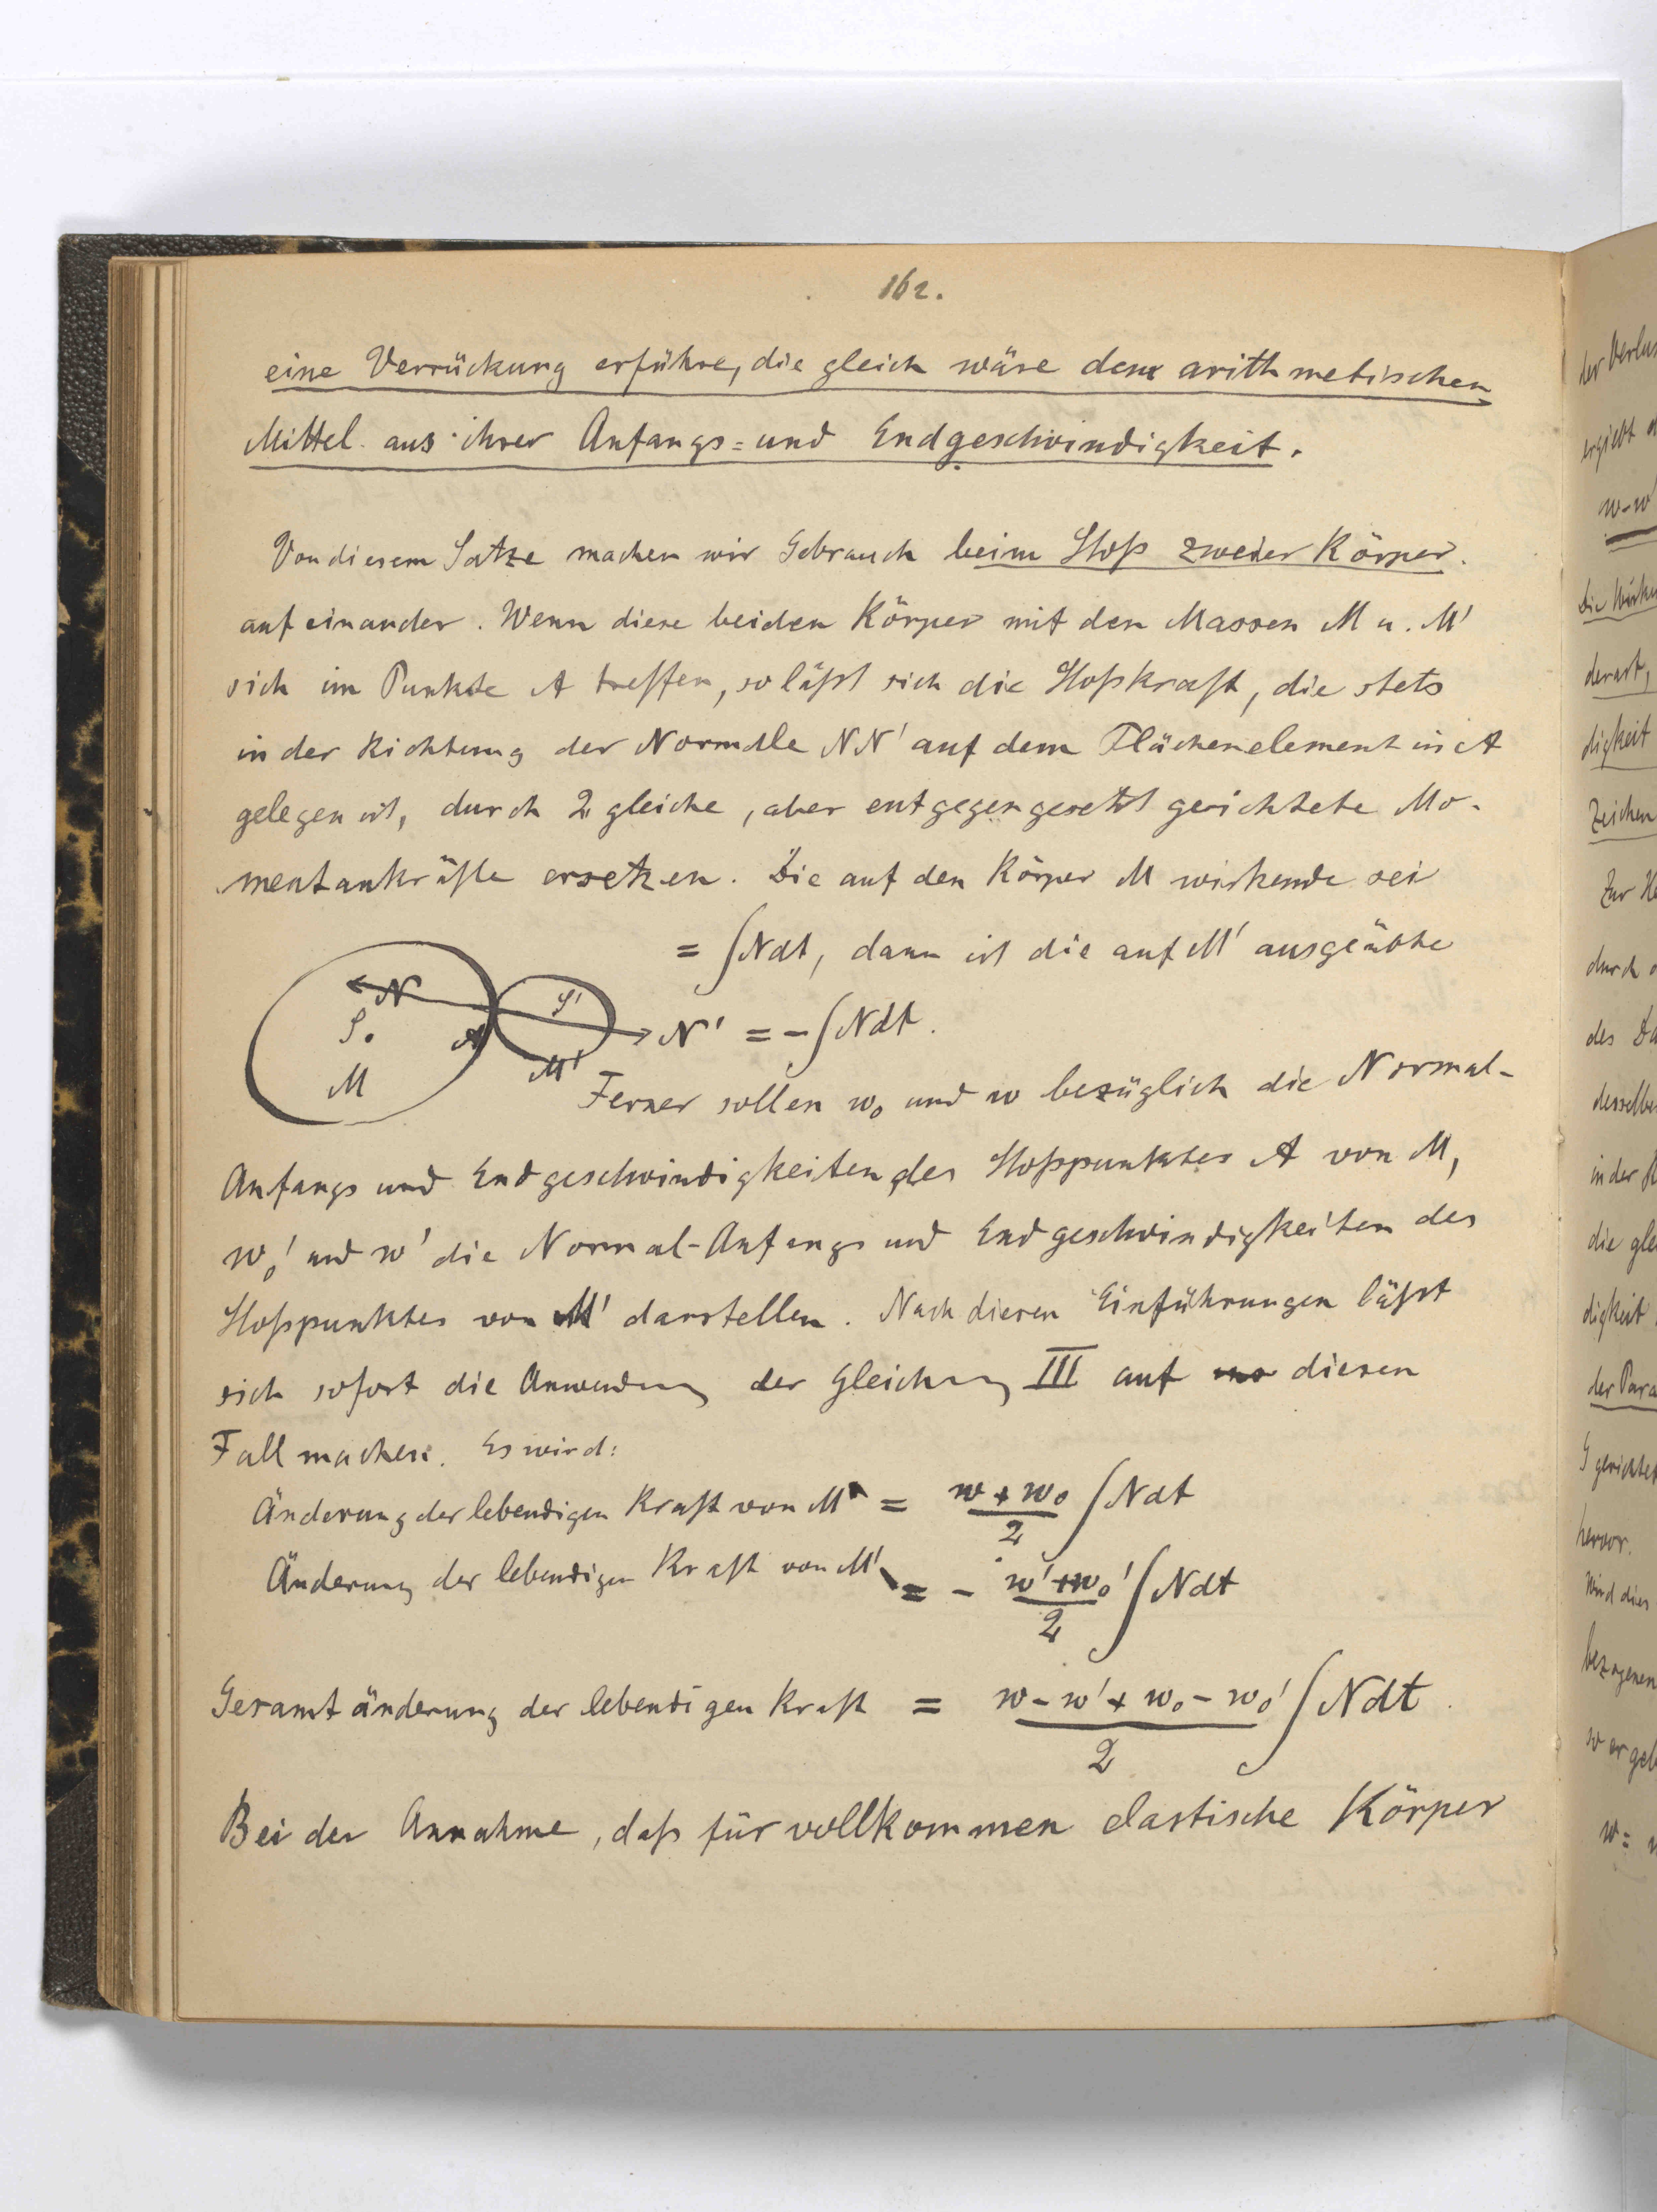 162.
eine Verrückung erführe, die gleich wäre dem arithmetischen
Mittel aus ihrer Anfangs= und Endgeschwindigkeit.
Von diesem Satze machen wir Gebrauch beim Stoß zweier Körper.
auf einander. Wenn diese beiden Körper mit den Massen M u. M'
sich im Punkte A treffen, so läßt sich die Stoßkraft, die stets
in der Richtung der Normale NN' auf dem Flächenelement in A
gelegen ist, durch 2 gleiche, aber entgegengesetzt gerichtete Mo-
mentankräfte ersetzen. Die auf den Körper M wirkende sei
= ∫Ndt, dann ist die auf M' ausgeübte
N S' S. A N' = -∫Ndt.
M M'
Ferner sollen w₀ und w bezüglich die Normal-
Anfangs und Endgeschwindigkeiten des Stoßpunktes A von M,
w₀' und w' die Normal-Anfangs und Endgeschwindigkeiten des
Stoßpunktes von M' darstellen. Nach diesen Einführungen läßt
sich sofort die Anwendung der Gleichung III auf diesen
Fall machen. Es wird:
Änderung der lebendigen Kraft von M = (w + w₀)/2 ∫Ndt
Änderung der lebendigen Kraft von M' = - (w' + w₀')/2 ∫Ndt
Gesamtänderung der lebendigen Kraft = (w - w' + w₀ - w₀')/2 ∫Ndt.
Bei der Annahme, daß für vollkommen elastische Körper
der
ergiebt
w-w'
derart,
digkeit
Zeichen
Zur
durch
des
in der
die
digkeit
der
G
hervor.
Wird dies
w =